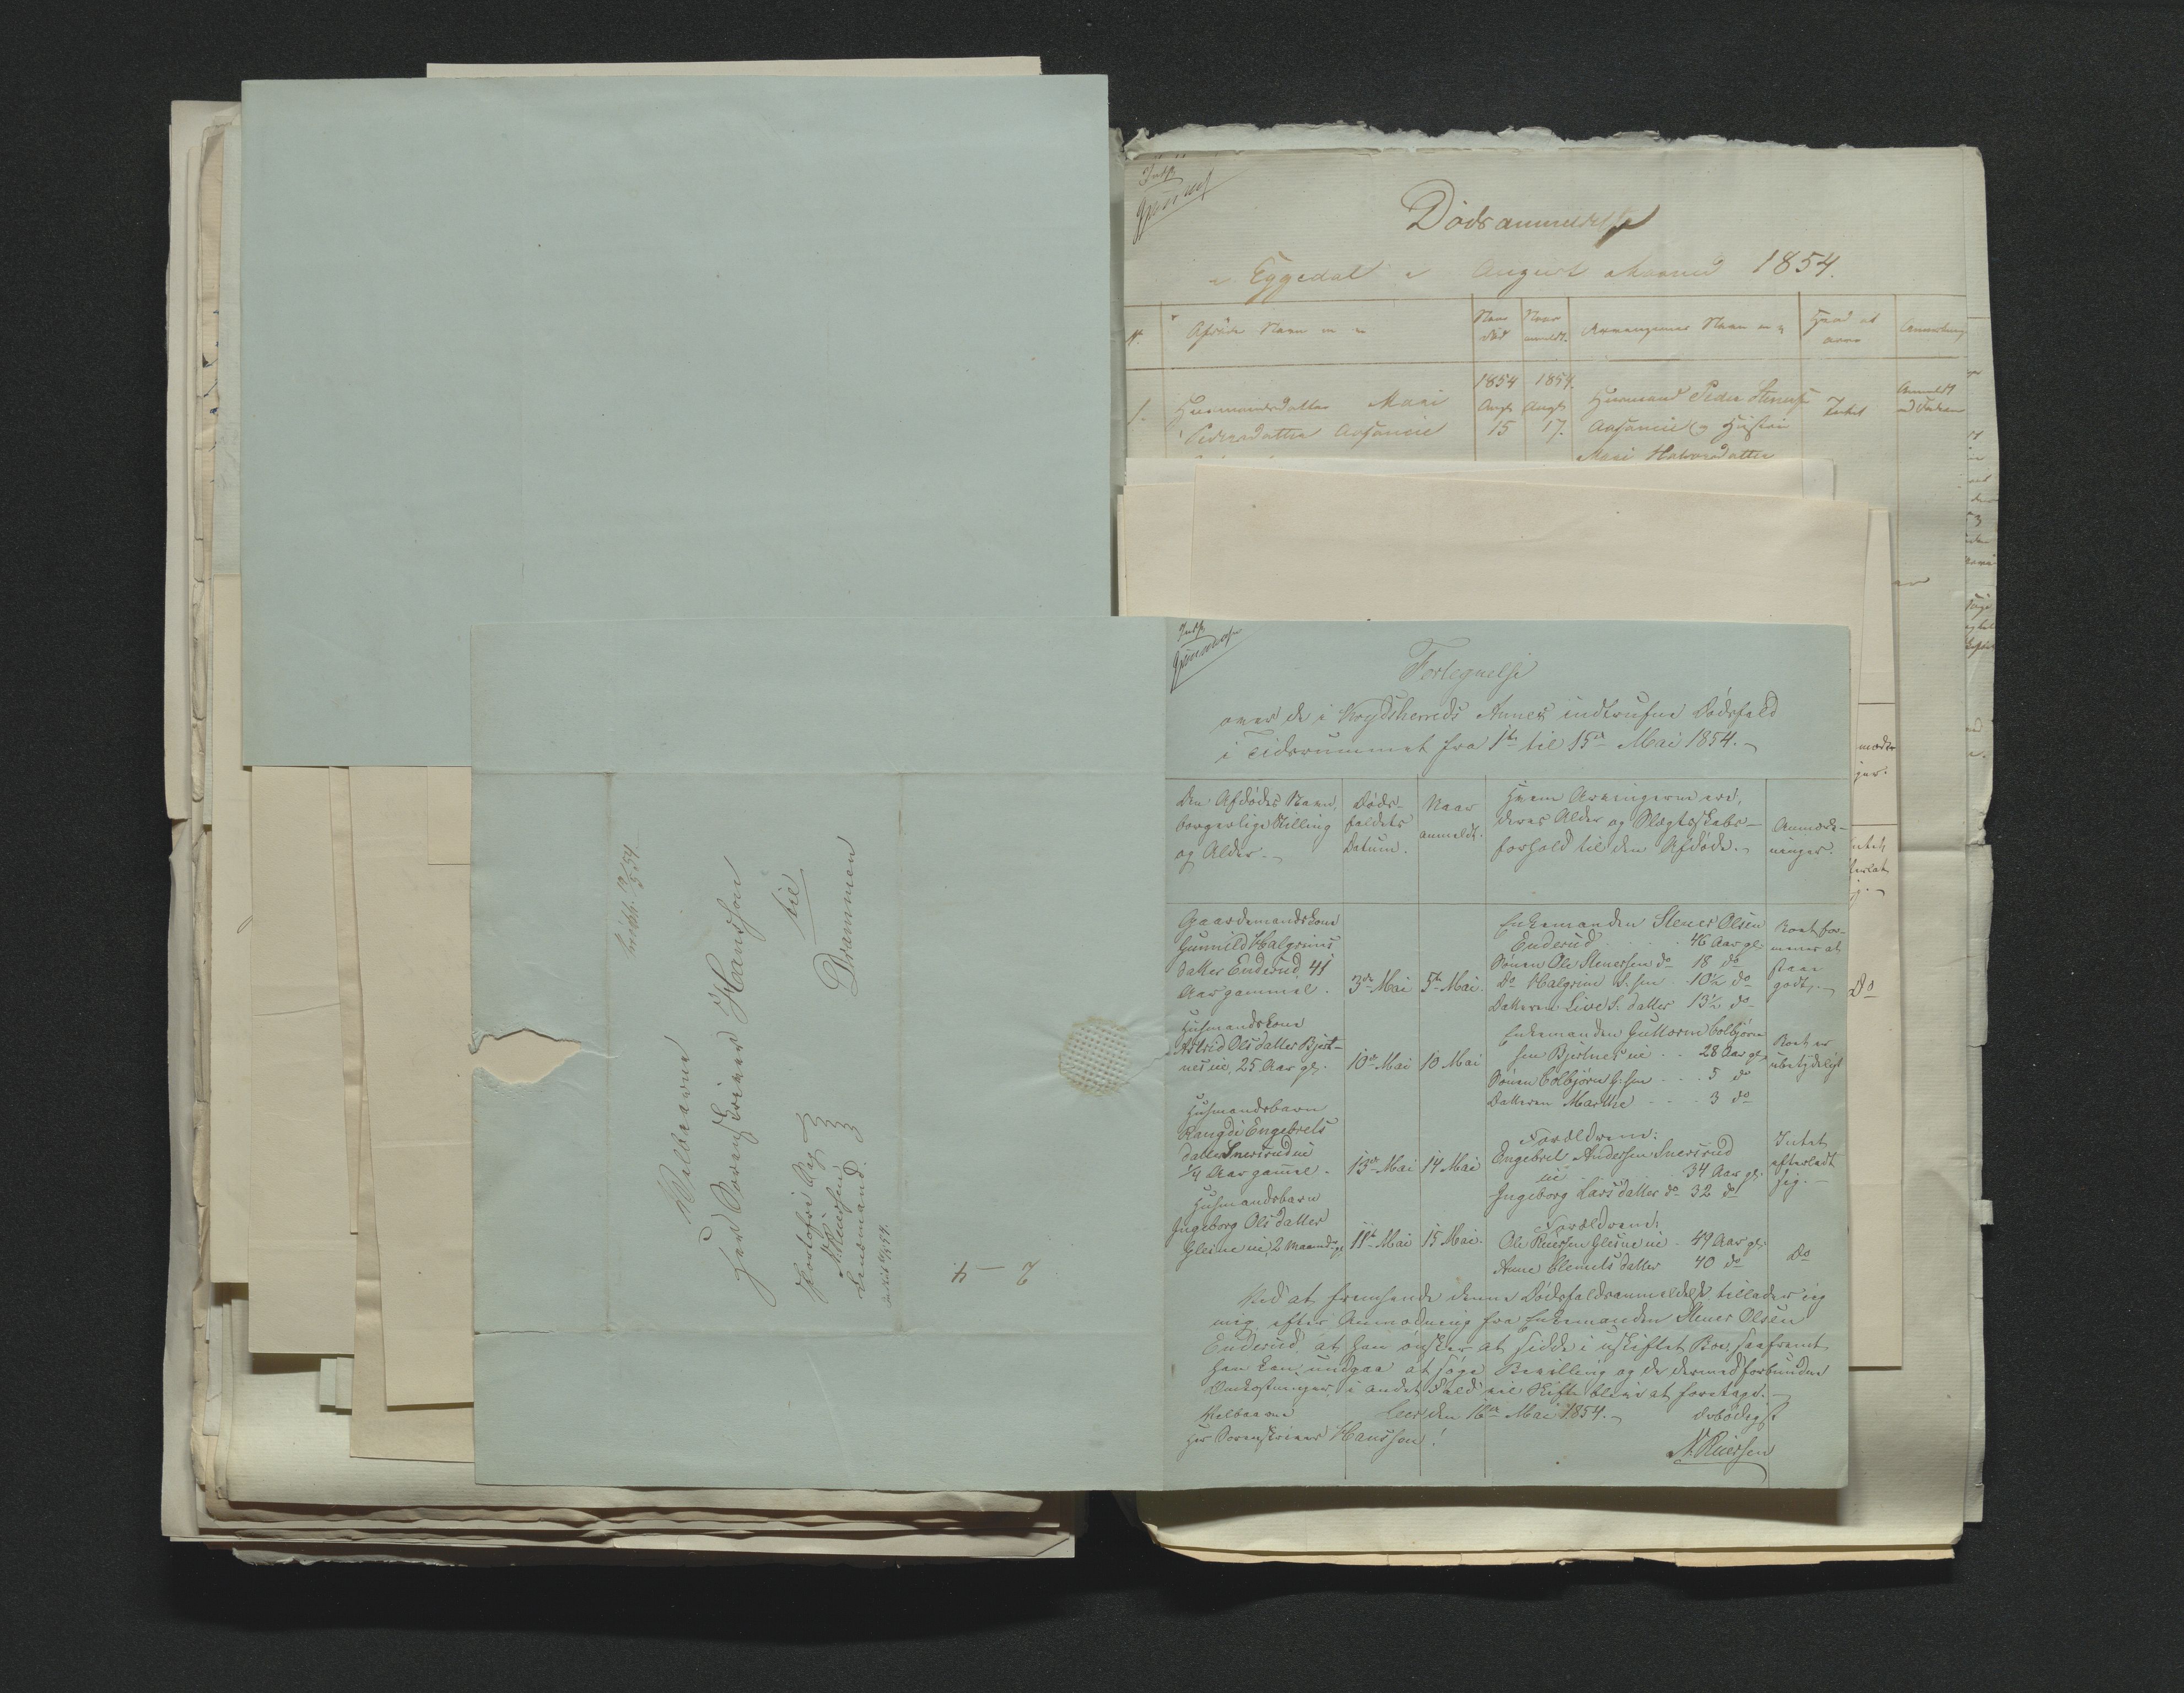 Dødsanmeldelse
i Eggedal i August Maaned 1854.
N.
Afdødes Navn m m
Naar død
Naar anmeldt.
Arvingernes Navn m m
Hvad at arve
Anmærkning
1.
Huusmandsdatter Mari
Pedersdatter
1854
Augt
15
1854.
Augt
17.
Huusmand Peder Steensen
og Hustru
Mari Halvorsdatter
Intet
Anmeldt
af Faderen
Fortegnelse
over de i Krydsherreds Annex indtrufne Dødsfald
i Tidsrummet fra 1te til 15de Mai 1854.
Den Afdødes Navn,
borgerlige Stilling
og Alder.
Døds-
faldets
Datum.
Naar
anmeldt.
Hvem Arvingerne ere,
deres Alder og Slægtskabs-
forhold til den Afdøde.
Anmærk-
ninger.
Gaardmandskone
Gunnild Halgrims
datter Enderud, 41
Aar gammel.
3de Mai
5te Mai.
Enkemanden Stener Olsen
Enderud . . . 46 Aar gl.
Sønnen Ole Stenersen do 18 do
Do Halgrim S.sen . 10½ do
Datteren Live S. datter 13½ do
Boet for-
menes at
staae
godt.
Huusmandskone
Astrid Olsdatter Bjert-
nes eie, 25 Aar gl.
10de Mai
10 Mai
Enkemanden Guttorm Colbjørn-
sen Bjertnes eie . . 28 Aar gl.
Sønnen Colbjørn G.sen . . . 5 do
Datteren Marthe . . . 3 do
Boet er
ubetydeligt
Huusmandsbarn
Rangdi Engebrets
datter Snersrudeie
¼ Aar gammel.
13de Mai
14 Mai
Forældrene:
Engebret Andersen Snersrud
eie . . 34 Aar gl.
Ingeborg Larsdatter do 32 do
Intet
efterladt
sig.
Huusmandsbarn
Ingeborg Olsdatter
Glesne eie, 2 Maaneder gl.
11te Mai
15 Mai.
Forældrene:
Ole Ruersen Glesne eie . 49 Aar gl.
Anne Clemetsdatter 40 do
Do
Ved at fremsende denne Dødsfaldsanmeldelse tillader jeg
mig, efter Anmodning fra Enkemanden Stener Olsen
Enderud, at han ønsker at sidde i uskiftet Boe, saafremt
han kan undgaa at søge Bevilling og de dermed forbundne
Omkostninger, i andet Fald vil Skifte blive at foretage.
den 16de Mai 1854.
Ærbødigst
Velbaarne
Hr Sorenskriver Hansson!
N. Ruersen
Velbaarne
Herr Sorenskriver Hansson
til
Drammen
Portofri Sag
N. Ruersen
Lensmand.
besørgt 19/5 54